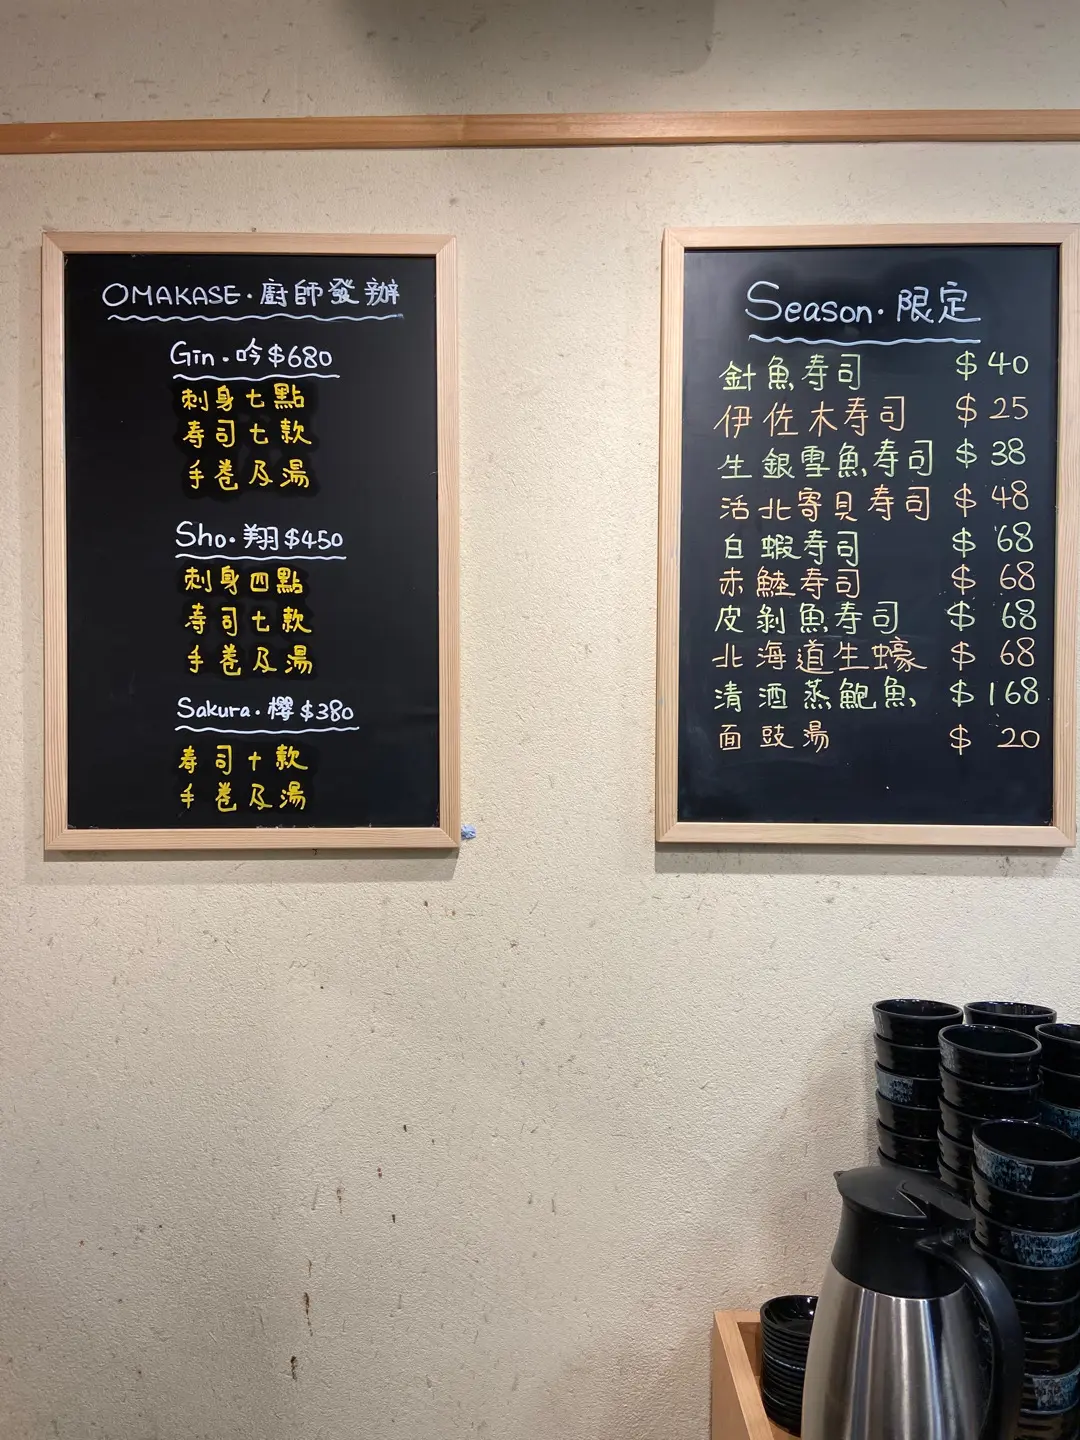 OMAKASE·廚師發辦
Gin·吟$680
刺身七點
寿司七款
手卷及湯
Sho·翔$450
刺身四點
寿司七款
手卷及湯
Sakura·櫻$380
寿司十款
手卷及湯
Season·限定
針魚寿司 $40
伊佐木寿司 $25
生銀雪魚寿司 $38
活北寄貝寿司 $48
白蝦寿司 $68
赤鯥寿司 $68
皮剝魚寿司 $68
北海道生蠔 $68
清酒蒸鮑魚 $168
面豉湯 $20